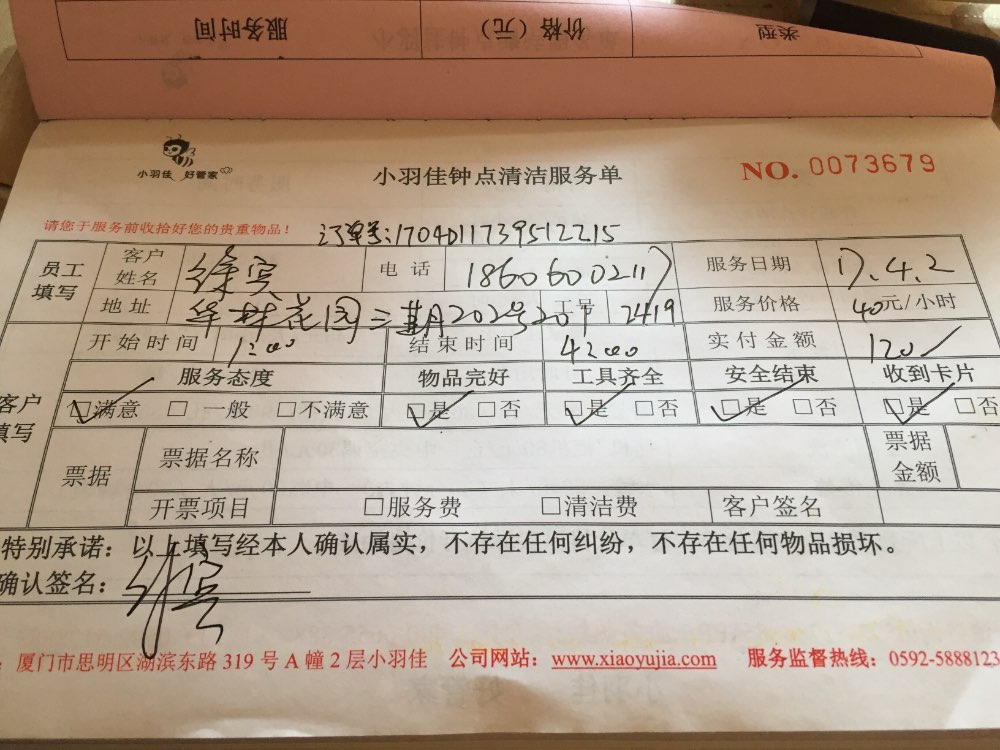 服务时间 价格（元） 类型
小羽佳 好管家
小羽佳钟点清洁服务单
NO. 0073679
请您于服务前收拾好您的贵重物品！
订单号:1704011739512215
员工填写 客户姓名 徐宾 电话 18606000217 服务日期 17.4.2
地址 华林花园三期202号201 工号 2419 服务价格 40元/小时
开始时间 1:00 结束时间 4:00 实付金额 120
服务态度 物品完好 工具齐全 安全结束 收到卡片
客户填写 ☑满意 □一般 □不满意 ☑是 □否 ☑是 □否 ☑是 □否 ☑是 □否
票据 票据名称 票据金额
开票项目 □服务费 □清洁费 客户签名
特别承诺：以上填写经本人确认属实，不存在任何纠纷，不存在任何物品损坏。
确认签名： 徐宾
：厦门市思明区湖滨东路 319 号 A 幢 2 层小羽佳 公司网站：www.xiaoyujia.com 服务监督热线：0592-5888123